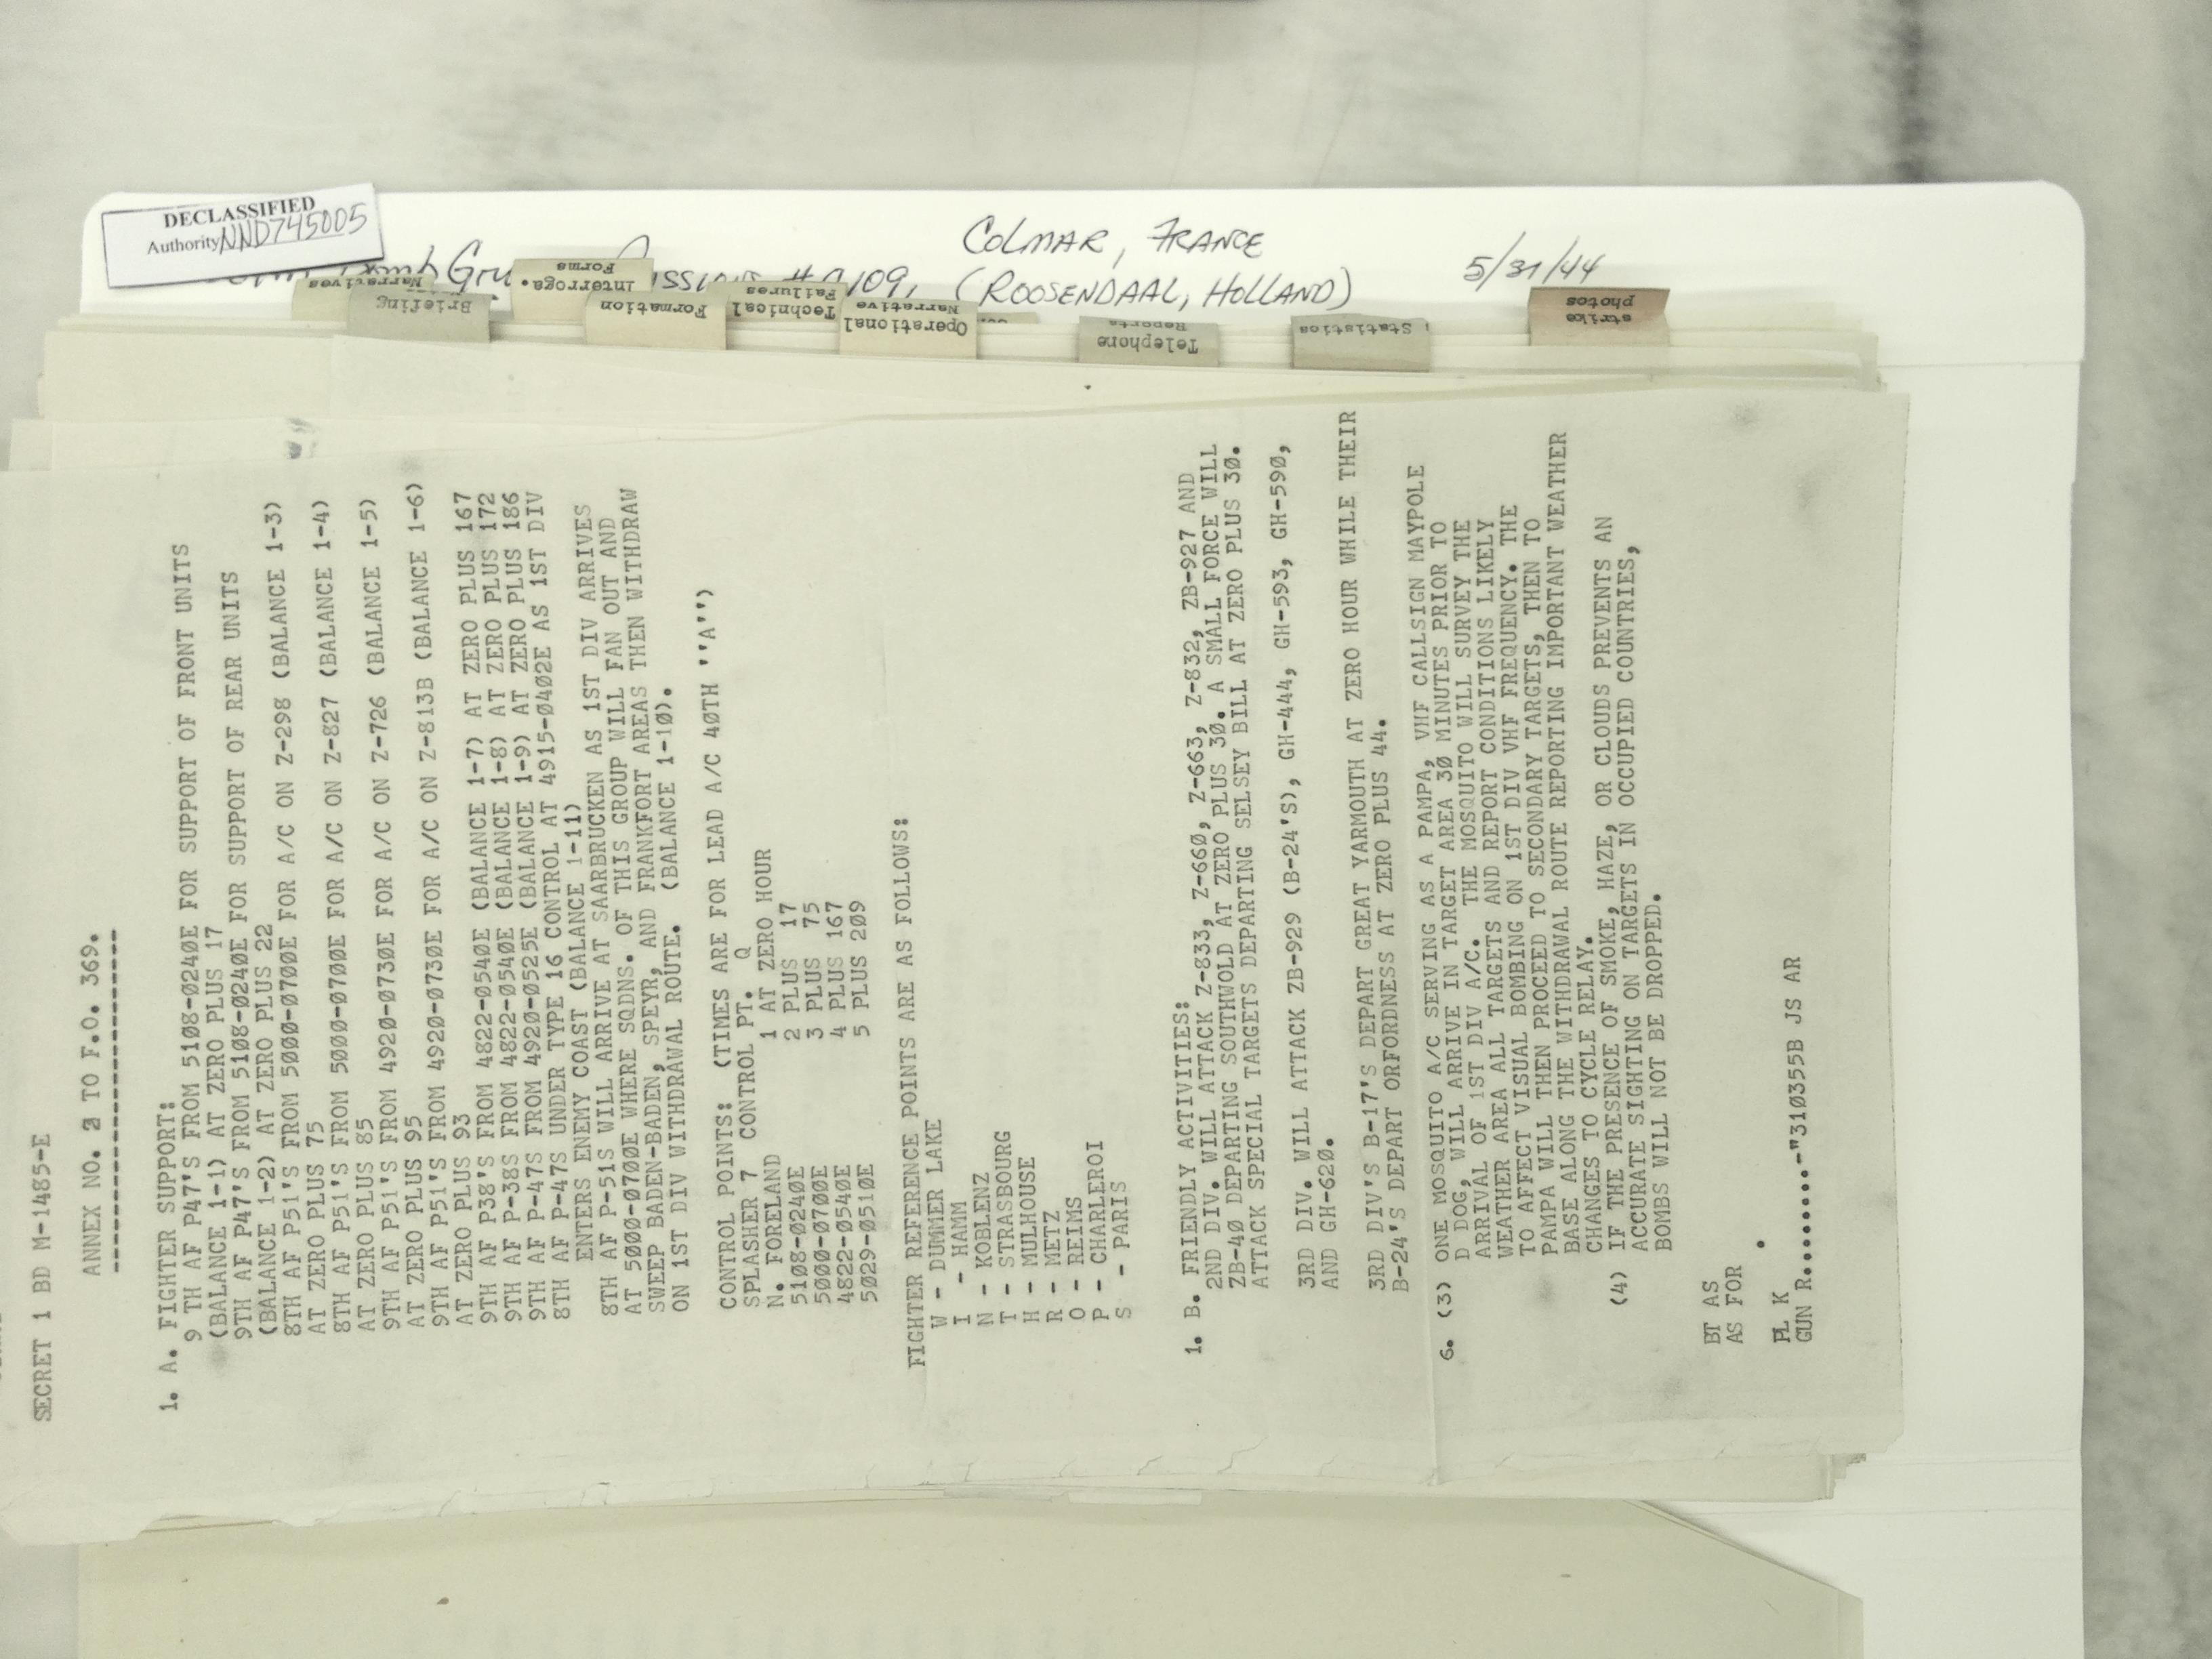 DECLASSIFIED
Authority NND745005
COLMAR, FRANCE
(ROOSENDAAL, HOLLAND)
5/31/44
Narratives
Briefing
Interroga.
Forms
Formation
Technical
Failures
Operational
Narrative
Telephone
Reports
Statistics
strike
photos
SECRET 1 BD M-1485-E
ANNEX NO. 2 TO F.O. 369.
1. A. FIGHTER SUPPORT:
9 TH AF P47'S FROM 5108-0240E FOR SUPPORT OF FRONT UNITS
(BALANCE 1-1) AT ZERO PLUS 17
9TH AF P47'S FROM 5108-0240E FOR SUPPORT OF REAR UNITS
(BALANCE 1-2) AT ZERO PLUS 22
8TH AF P51'S FROM 5000-0700E FOR A/C ON Z-298 (BALANCE 1-3)
AT ZERO PLUS 75
8TH AF P51'S FROM 5000-0700E FOR A/C ON Z-827 (BALANCE 1-4)
AT ZERO PLUS 85
9TH AF P51'S FROM 4920-0730E FOR A/C ON Z-726 (BALANCE 1-5)
AT ZERO PLUS 95
9TH AF P51'S FROM 4920-0730E FOR A/C ON Z-813B (BALANCE 1-6)
AT ZERO PLUS 93
9TH AF P38'S FROM 4822-0540E (BALANCE 1-7) AT ZERO PLUS 167
9TH AF P-38S FROM 4822-0540E (BALANCE 1-8) AT ZERO PLUS 172
9TH AF P-47S FROM 4920-0525E (BALANCE 1-9) AT ZERO PLUS 186
8TH AF P-47S UNDER TYPE 16 CONTROL AT 4915-0402E AS 1ST DIV
ENTERS ENEMY COAST (BALANCE 1-11)
8TH AF P-51S WILL ARRIVE AT SAARBRUCKEN AS 1ST DIV ARRIVES
AT 5000-0700E WHERE SQDNS. OF THIS GROUP WILL FAN OUT AND
SWEEP BADEN-BADEN, SPEYR, AND FRANKFORT AREAS THEN WITHDRAW
ON 1ST DIV WITHDRAWAL ROUTE. (BALANCE 1-10).
CONTROL POINTS: (TIMES ARE FOR LEAD A/C 40TH ''A'')
SPLASHER 7 CONTROL PT. Q
N. FORELAND 1 AT ZERO HOUR
5108-0240E 2 PLUS 17
5000-0700E 3 PLUS 75
4822-0540E 4 PLUS 167
5029-0510E 5 PLUS 209
FIGHTER REFERENCE POINTS ARE AS FOLLOWS:
W - DUMMER LAKE
I - HAMM
N - KOBLENZ
T - STRASBOURG
H - MULHOUSE
R - METZ
O - REIMS
P - CHARLEROI
S - PARIS
1. B. FRIENDLY ACTIVITIES:
2ND DIV. WILL ATTACK Z-833, Z-660, Z-663, Z-832, ZB-927 AND
ZB-40 DEPARTING SOUTHWOLD AT ZERO PLUS 30. A SMALL FORCE WILL
ATTACK SPECIAL TARGETS DEPARTING SELSEY BILL AT ZERO PLUS 30.
3RD DIV. WILL ATTACK ZB-929 (B-24'S), GH-444, GH-593, GH-590,
AND GH-620.
3RD DIV'S B-17'S DEPART GREAT YARMOUTH AT ZERO HOUR WHILE THEIR
B-24'S DEPART ORFORDNESS AT ZERO PLUS 44.
6. (3) ONE MOSQUITO A/C SERVING AS A PAMPA, VHF CALLSIGN MAYPOLE
D DOG, WILL ARRIVE IN TARGET AREA 30 MINUTES PRIOR TO
ARRIVAL OF 1ST DIV A/C. THE MOSQUITO WILL SURVEY THE
WEATHER AREA ALL TARGETS AND REPORT CONDITIONS LIKELY
TO AFFECT VISUAL BOMBING ON 1ST DIV VHF FREQUENCY. THE
PAMPA WILL THEN PROCEED TO SECONDARY TARGETS, THEN TO
BASE ALONG THE WITHDRAWAL ROUTE REPORTING IMPORTANT WEATHER
CHANGES TO CYCLE RELAY.
(4) IF THE PRESENCE OF SMOKE, HAZE, OR CLOUDS PREVENTS AN
ACCURATE SIGHTING ON TARGETS IN OCCUPIED COUNTRIES,
BOMBS WILL NOT BE DROPPED.
BT AS
AS FOR .
PL K
GUN R.........-"310355B JS AR